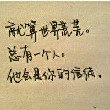 世界荒芜。
总有一个人。
他会是你的信徒。